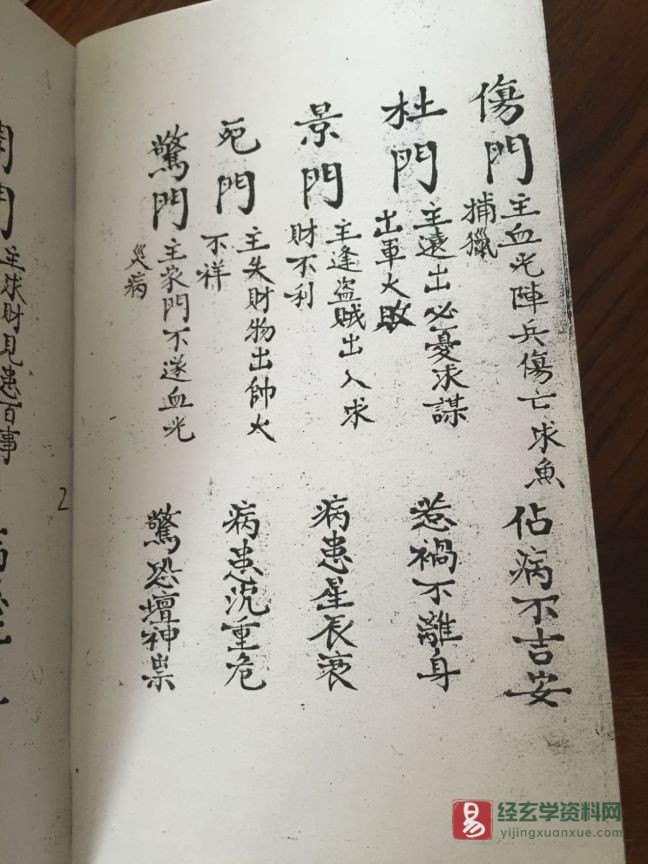 傷門 主血光陣兵傷亡求魚
捕獵
佔病不吉安
杜門 主遠出必憂求謀
出軍大敗
惹禍不離身
景門 主逢盜賊出入求
財不利
病患星辰衰
死門 主失財物出帥大
不祥
病患沉重危
驚門 主家門不遂血光
災病
驚恐壇神祟
2
開門 主求財見患百事
易
经玄学资料网
yijingxuanxue.com